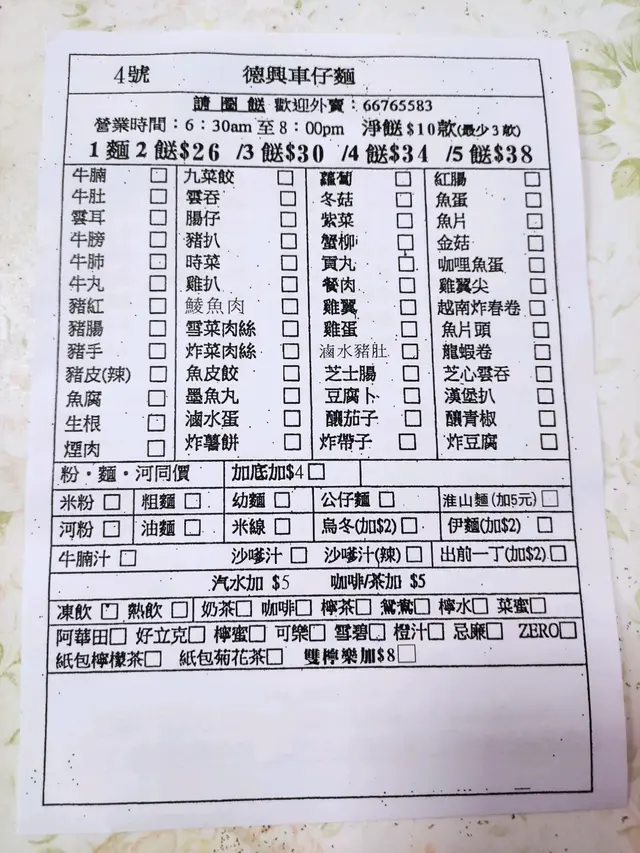 4號 德興車仔麵
請圈餸 歡迎外賣：66765583
營業時間：6：30am 至 8：00pm 淨餸 $10款(最少3款)
1 麵 2 餸$26 /3 餸$30 /4 餸$34 /5 餸$38
牛腩□ 九菜餃□ 蘿蔔□ 紅腸□
牛肚□ 雲吞□ 冬菇□ 魚蛋□
雲耳□ 腸仔□ 紫菜□ 魚片□
牛膀□ 豬扒□ 蟹柳□ 金菇□
牛肺□ 時菜□ 貢丸□ 咖哩魚蛋□
牛丸□ 雞扒□ 餐肉□ 雞翼尖□
豬紅□ 鯪魚肉□ 雞翼□ 越南炸春卷□
豬腸□ 雪菜肉絲□ 雞蛋□ 魚片頭□
豬手□ 炸菜肉絲□ 滷水豬肚□ 龍蝦卷□
豬皮(辣)□ 魚皮餃□ 芝士腸□ 芝心雲吞□
魚腐□ 墨魚丸□ 豆腐卜□ 漢堡扒□
生根□ 滷水蛋□ 釀茄子□ 釀青椒□
煙肉□ 炸薯餅□ 炸帶子□ 炸豆腐□
粉・麵・河同價 加底加$4□
米粉□ 粗麵□ 幼麵□ 公仔麵□ 淮山麵(加5元)□
河粉□ 油麵□ 米線□ 烏冬(加$2)□ 伊麵(加$2)□
牛腩汁□ 沙嗲汁□ 沙嗲汁(辣)□ 出前一丁(加$2)□
汽水加 $5 咖啡/茶加 $5
凍飲□ 熱飲□ 奶茶□ 咖啡□ 檸茶□ 鴛鴦□ 檸水□ 菜蜜□
阿華田□ 好立克□ 檸蜜□ 可樂□ 雪碧□ 橙汁□ 忌廉□ ZERO□
紙包檸檬茶□ 紙包菊花茶□ 雙檸樂加$8□